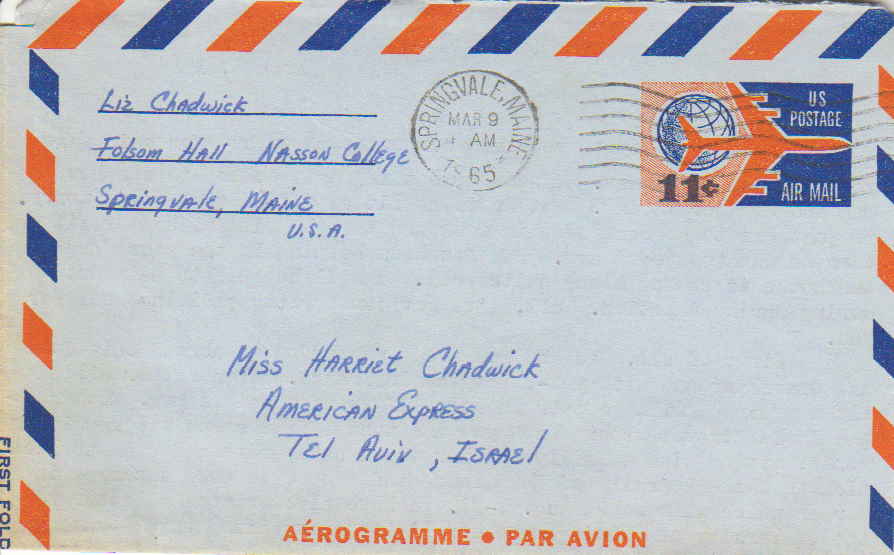 Liz Chadwick
Folsom Hall Nasson College
Springvale, Maine
U.S.A.
SPRINGVALE, MAINE
MAR 9
AM
1965
US
POSTAGE
11¢
AIR MAIL
Miss Harriet Chadwick
American Express
Tel Aviv, Israel
FIRST FOLD
AÉROGRAMME • PAR AVION